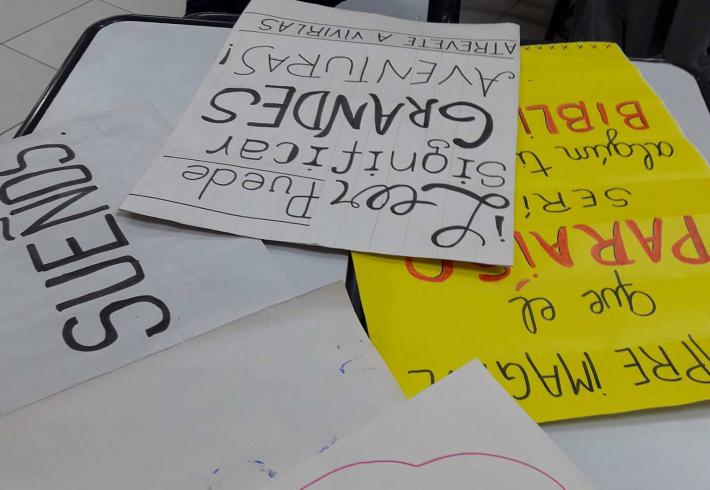 ¡Leer Puede
Significar
GRANDES
AVENTURAS!
ATREVETE A VIVIRLAS
PRE iMAG
que el
PARAÍSO
SERÍ
algún ti
BiBLi
SUEÑOS.